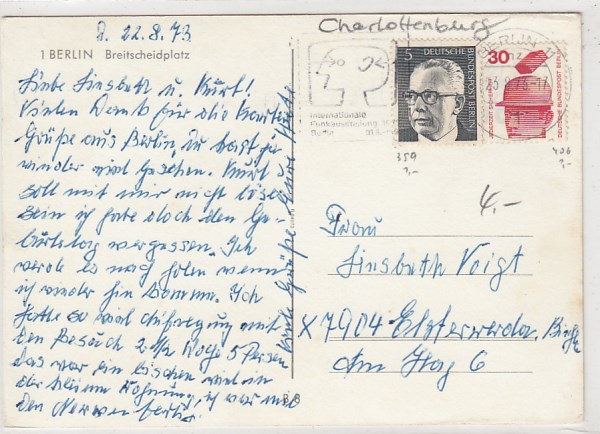 D. 22.8.73
1 BERLIN Breitscheidplatz
Liebe Linsbeth u. Kurt!
Vielen Dank für die Karten
Grüße aus Berlin, Du hast ja
wieder viel gesehen. Kurt
soll mit mir nicht böse
sein ich habe doch den Ge-
burtstag vergessen. Ich
werde es nach holen wenn
ich wieder hin komme. Ich
hatte so viel Aufregung mit
den Besuch 2 1/2 Woge 5 Persen
das war ein bischen viel in
der kleinen Wohnung, ich war mit
den Nerven fertig!
Viele Grüße Eure
Charlottenburg
Internationale
Funkausstellung
Berlin
5
DEUTSCHE BUNDESPOST BERLIN
30
DEUTSCHE BUNDESPOST BERLIN
BERLIN
23.8.73-17
359
1,-
406
1,-
4,-
Frau
Linsbeth Voigt
X 7904 Elsterwerda, Biehla
Am Hag 6